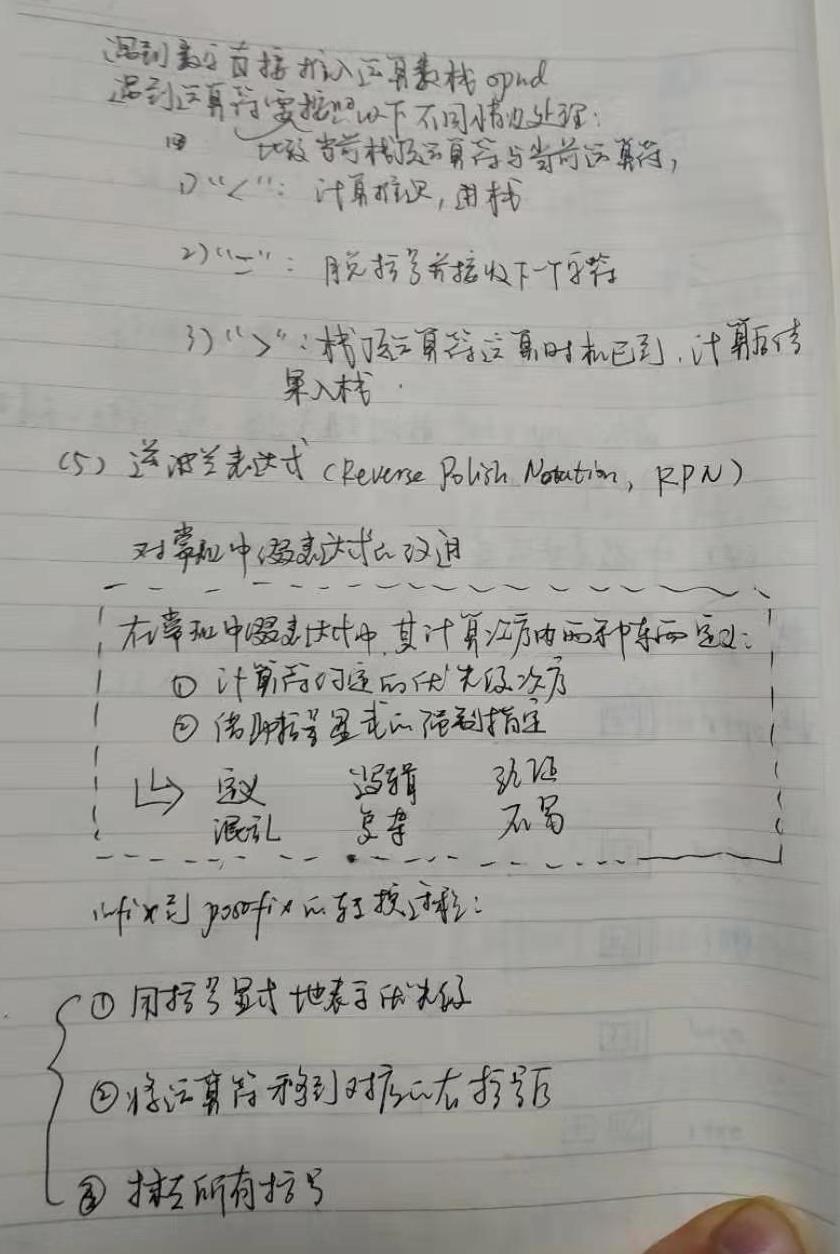 遇到数字直接推入运算数栈 opnd
遇到运算符需按照以下不同情况处理:
比较当前栈顶运算符与当前运算符,
1) "<": 计算推迟, 进栈
2) "=": 脱括号并接收下一个字符
3) ">": 栈顶运算符运算时机已到, 计算后结
果入栈.
(5) 逆波兰表达式 (Reverse Polish Notation, RPN)
对常规中缀表达式的改进
在常规中缀表达式中, 其计算次序由两种东西定义:
① 计算符约定的优先级次序
② 借助括号显式的强制指定
定义 逻辑
混乱 复杂 不易
infix到 postfix的转换过程:
① 用括号显式地表示优先级
② 将运算符移到对应的右括号后
③ 抹去所有括号